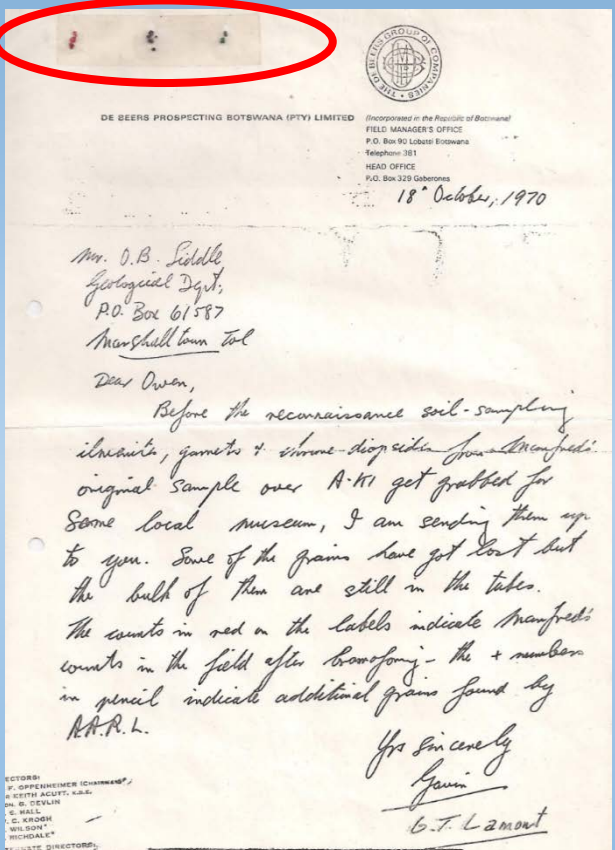 THE DE BEERS GROUP OF COMPANIES
DE BEERS PROSPECTING BOTSWANA (PTY) LIMITED
(Incorporated in the Republic of Botswana)
FIELD MANAGER'S OFFICE
P.O. Box 90 Lobatsi Botswana
Telephone 381
HEAD OFFICE
P.O. Box 329 Gaberones
18th October, 1970
Mr. O.B. Siddle
Geological Dept,
P.O. Box 61587
Marshalltown Tvl
Dear Owen,
Before the reconnaissance soil-sampling
ilmenites, garnets & chrome-diopsides from Manfred's
original sample over A-K1 get grabbed for
some local museum, I am sending them up
to you. Some of the grains have got lost but
the bulk of them are still in the tubes.
The counts in red on the labels indicate Manfred's
counts in the field after bromoforming - the + numbers
in pencil indicate additional grains found by
A.A.R.L.
Yrs sincerely
Gavin
G.T. Lamont
ECTORS:
F. OPPENHEIMER (CHAIRMAN)
KEITH ACUTT, K.B.E.
B. DEVLIN
C. HALL
C. KROGH
WILSON*
RICHDALE*
DIRECTORS: